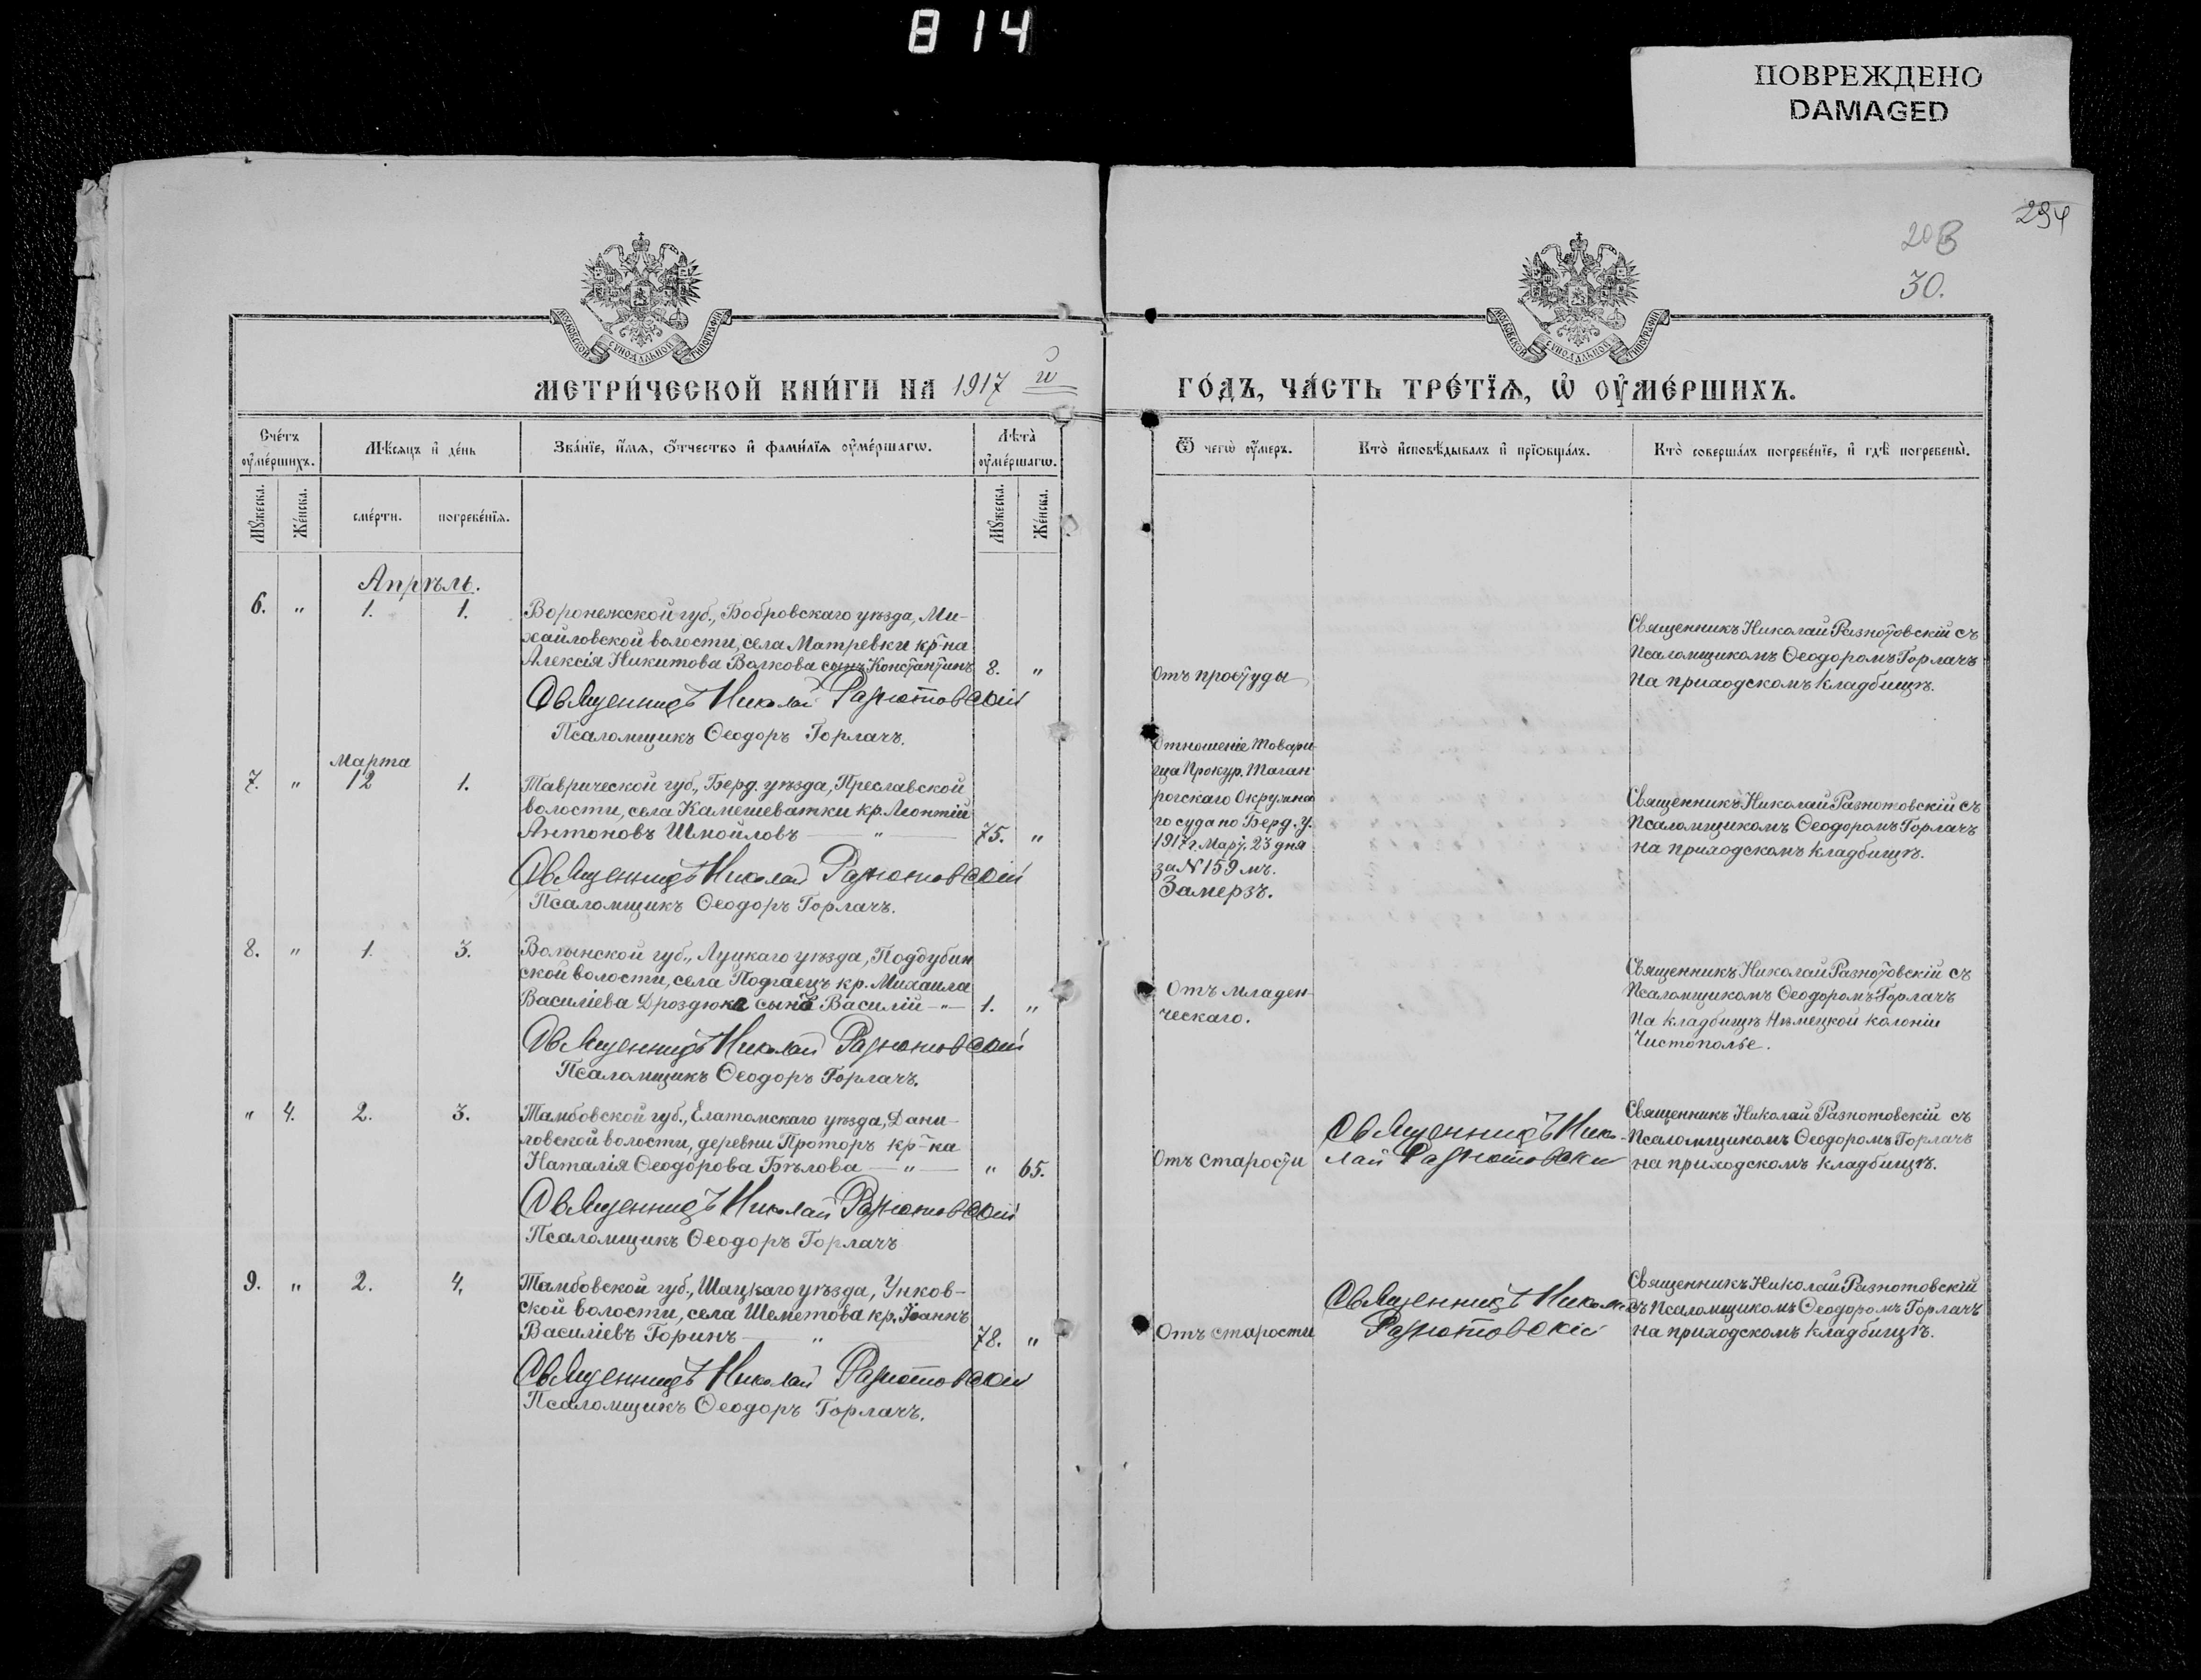 814
ПОВРЕЖДЕНО
DAMAGED
294
20
30.
МОСКОВСКОЙ СѴНОДАЛЬНОЙ ТИПОГРАФІИ
МОСКОВСКОЙ СѴНОДАЛЬНОЙ ТИПОГРАФІИ
МЕТРИ́ЧЕСКОЙ КНИ́ГИ НА 1917 й
ГО́ДЪ, ЧА́СТЬ ТРЕ́ТЇѦ, Ѽ ОУ҆МЕ́РШИХЪ.
Сче́тъ оу҆ме́ршихъ.
Мѣ́сѧцъ и҆ де́нь
Зва́нїе, и҆́мѧ, ѻ҆́тчество и҆ фами́лїѧ оу҆ме́ршагѡ.
Лѣ́та̀ оу҆ме́ршагѡ.
Ѿ чегѡ̀ оу҆́меръ.
Кто̀ и҆сповѣ́дывалъ и҆ прїѻбща́лъ.
Кто̀ соверша́лъ погребе́нїе, и҆ гдѣ̀ погребены̀.
Мꙋ́жеска.
Же́нска.
сме́рти.
погребе́нїѧ.
Мꙋ́жеска.
Же́нска.
Апрѣль.
6. " 1. 1.
Воронежской губ., Бобровскаго уѣзда, Ми-
хайловской волости, села Матревки кр-на
Алексія Никитова Волкова сынъ Константинъ 8. "
Священникъ Николай Разнотовскій
Псаломщикъ Ѳеодоръ Горлачъ.
Отъ простуды
Священникъ Николай Разнотовскій съ
Псаломщикомъ Ѳеодоромъ Горлачъ
на приходскомъ кладбищѣ.
Марта
7. " 12 1.
Таврической губ., Берд. уѣзда, Преславской
волости, села Камешеватки кр. Леонтій
Антоновъ Шмойловъ — " — 75. "
Священникъ Николай Разнотовскій
Псаломщикъ Ѳеодоръ Горлачъ.
Отношеніе Товари-
ща Прокур. Таган
рогскаго Окружна
го суда по Берд. у.
1917 г. Март. 23 дня
за N 159 мъ.
Замерзъ.
Священникъ Николай Разнотовскій съ
Псаломщикомъ Ѳеодоромъ Горлачъ
на приходскомъ кладбищѣ.
8. " 1. 3.
Волынской губ., Луцкаго уѣзда, Поддубин
ской волости, села Подгаецъ кр. Михаила
Василіева Дроздюка сынъ Василій — " — 1. "
Священникъ Николай Разнотовскій
Псаломщикъ Ѳеодоръ Горлачъ.
Отъ младен-
ческаго.
Священникъ Николай Разнотовскій съ
Псаломщикомъ Ѳеодоромъ Горлачъ
на кладбищѣ Нѣмецкой колоніи
Чистополье.
" 4. 2. 3.
Тамбовской губ., Елатомскаго уѣзда, Дани-
ловской волости, деревни Проторъ кр-ка
Наталія Ѳеодорова Бѣлова — " — " 65.
Священникъ Николай Разнотовскій
Псаломщикъ Ѳеодоръ Горлачъ
Отъ старости
Священникъ Нико-
лай Разнотовскій
Священникъ Николай Разнотовскій съ
Псаломщикомъ Ѳеодоромъ Горлачъ
на приходскомъ кладбищѣ.
9. " 2. 4.
Тамбовской губ., Шацкаго уѣзда, Унков-
ской волости, села Шеметова кр. Іоаннъ
Василіевъ Горинъ — " 78. "
Священникъ Николай Разнотовскій
Псаломщикъ Ѳеодоръ Горлачъ.
Отъ старости
Священникъ Николай
Разнотовскій
Священникъ Николай Разнотовскій
съ Псаломщикомъ Ѳеодоромъ Горлачъ
на приходскомъ кладбищѣ.